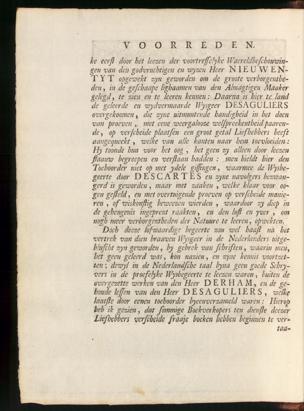 VOORREDEN.
ke eerst door het leezen der voortreffelyke Waereldbeschouwin-
gen van den godvruchtigen en wyzen Heer NIEUWEN-
TYT opgewekt zyn geworden om de groote verborgenthe-
den, in de geschaape lighaamen van den Almagtigen Maaker
gelegd, te zien en te leeren kennen: Daarna is hier te land
de geleerde en wydvermaarde Wysgeer DESAGULIERS
overgekomen, die zyne uitmuntende handigheid in het doen
van proeven, met eene weergalooze welspreekentheid paaren-
de, op verscheide plaatsen een groot getal Liefhebbers heeft
aangequeekt, welke van alle kanten naar hem toevloeiden:
Hy toonde hun voor het oog, het geen zy alleen door leezen
flaauw begreepen en verstaan hadden: men hieldt hier den
Toehoorder niet op met ydele gissingen, waarmee de Wysbe-
geerte door DESCARTES en zyne navolgers bezwan-
gerd is geworden, maar met zaaken, welke klaar voor oo-
gen gesteld, en met overtuigende proeven op verscheide manie-
ren, of wiskonstig beweezen wierden, waardoor zy diep in
de geheugenis ingeprent raakten, en den lust en yver, om
nogh meer verborgentheden der Natuure te leeren, opwekten.
Doch deeze lofwaardige begeerte zou wel haast na het
vertrek van dien braaven Wysgeer in de Nederlanden uitge-
bluscht zyn geworden, by gebrek van schriften, waarin men,
het geen geleerd was, kon nazien, en zyne kennis voortzet-
ten; dewyl in de Nederlandsche taal byna geen goede Schry-
vers in de proefkundige Wysbegeerte te leezen waren, buiten de
overgezette werken van den Heer DERHAM, en de ge-
houde lessen van den Heer DESAGULIERS, welke
laatste door eenen toehoorder byeenverzameld waren: Hierop
heb ik gezien, dat sommige Boekverkopers ten dienste deezer
Liefhebbers verscheide fraaije boeken hebben beginnen te ver-
taa-